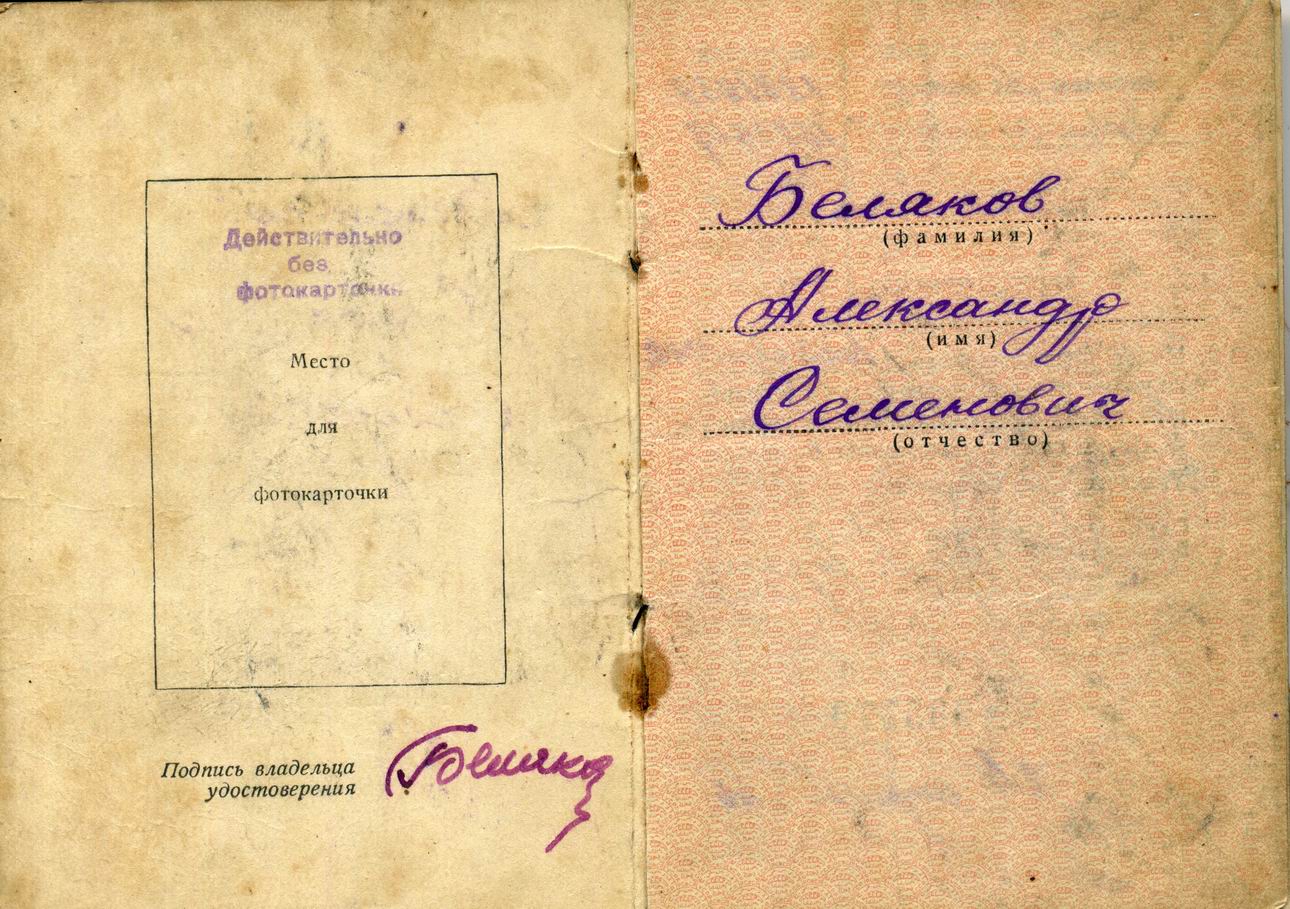 Действительно
без
фотокарточки
Место
для
фотокарточки
Подпись владельца
удостоверения
Беляков
Беляков
(фамилия)
Александр
(имя)
Семенович
(отчество)